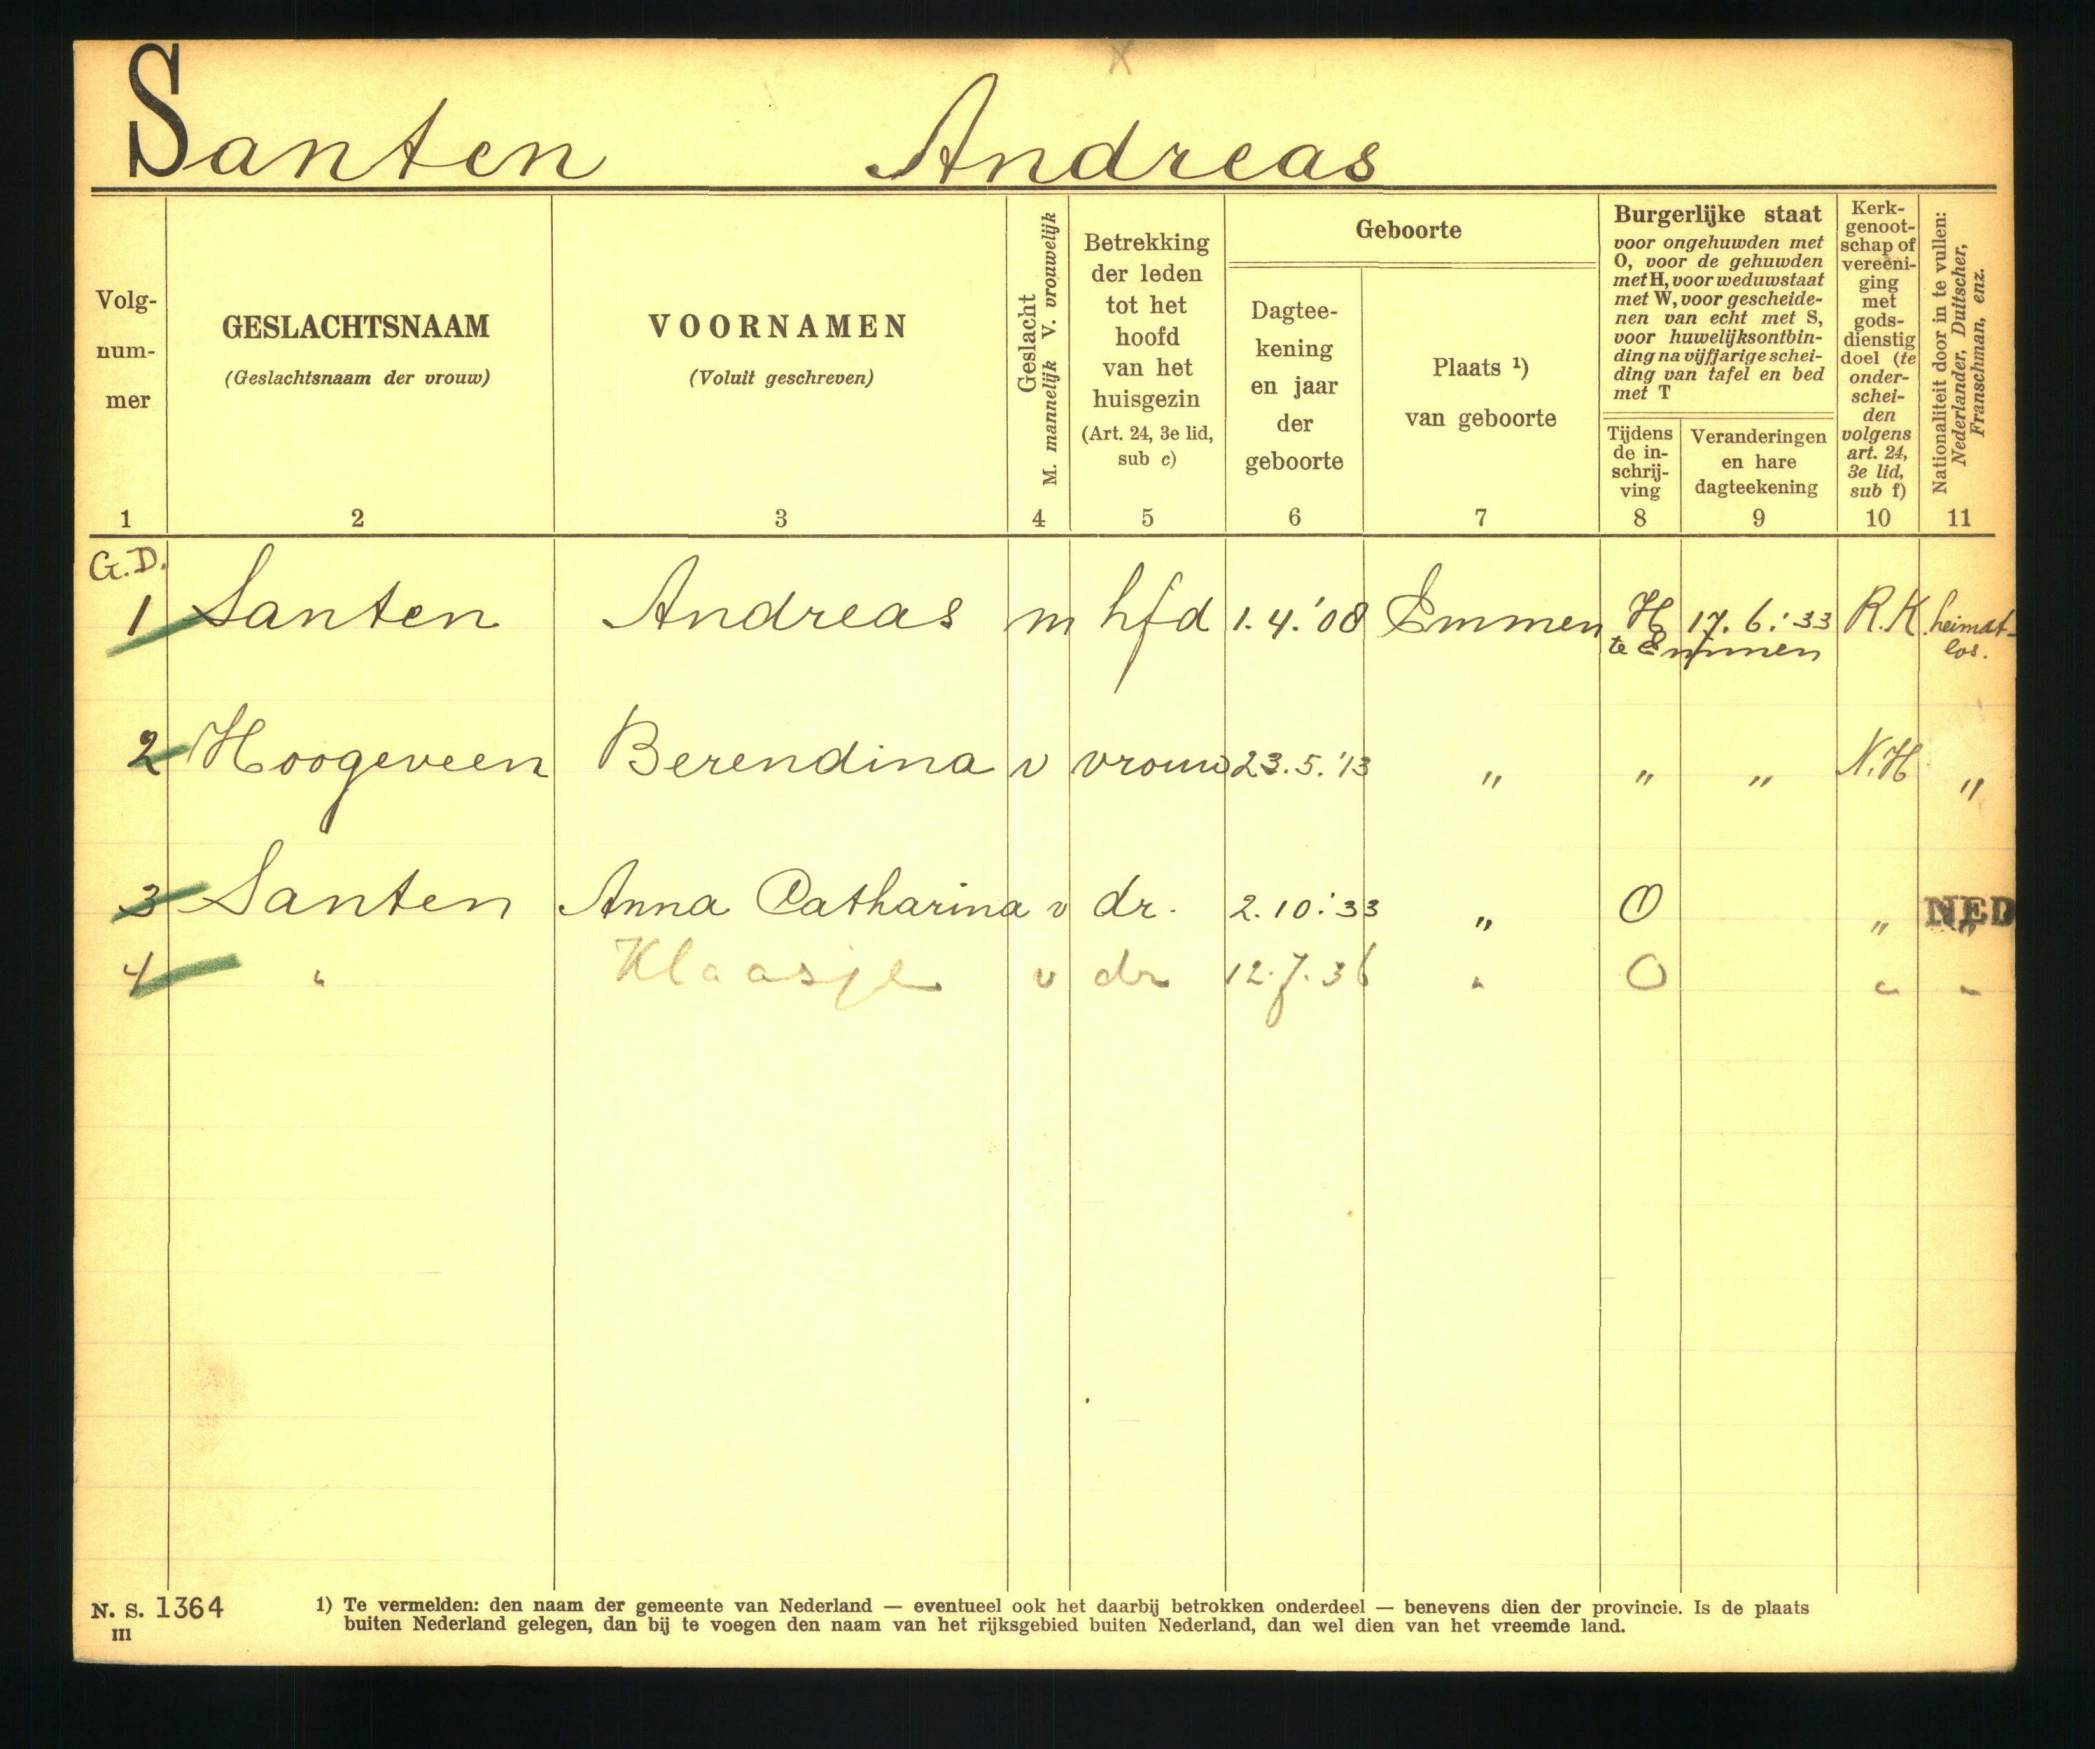 Santen Andreas
Volg-
num-
mer
1
GESLACHTSNAAM
(Geslachtsnaam der vrouw)
2
VOORNAMEN
(Voluit geschreven)
3
Geslacht
M. mannelijk V. vrouwelijk
4
Betrekking
der leden
tot het
hoofd
van het
huisgezin
(Art. 24, 3e lid,
sub c)
5
Geboorte
Dagtee-
kening
en jaar
der
geboorte
6
Plaats ¹)
van geboorte
7
Burgerlijke staat
voor ongehuwden met
O, voor de gehuwden
met H, voor weduwstaat
met W, voor gescheide-
nen van echt met S,
voor huwelijksontbin-
ding na vijfjarige schei-
ding van tafel en bed
met T
Tijdens
de in-
schrij-
ving
8
Veranderingen
en hare
dagteekening
9
Kerk-
genoot-
schap of
vereeni-
ging
met
gods-
dienstig
doel (te
onder-
schei-
den
volgens
art. 24,
3e lid,
sub f)
10
Nationaliteit door in te vullen:
Nederlander, Duitscher,
Franschman, enz.
11
G.D.
1 Santen Andreas m hfd 1.4.'08 Emmen H 17.6.'33 R.K. heimat-
te Emmen los.
2 Hoogeveen Berendina v vrouw 23.5.'13 " " " N.H "
3 Santen Anna Catharina v dr. 2.10.'33 " O " NED
4 " Klaasje v dr 12.7.36 " O " "
N. S. 1364
III
1) Te vermelden: den naam der gemeente van Nederland — eventueel ook het daarbij betrokken onderdeel — benevens dien der provincie. Is de plaats
buiten Nederland gelegen, dan bij te voegen den naam van het rijksgebied buiten Nederland, dan wel dien van het vreemde land.